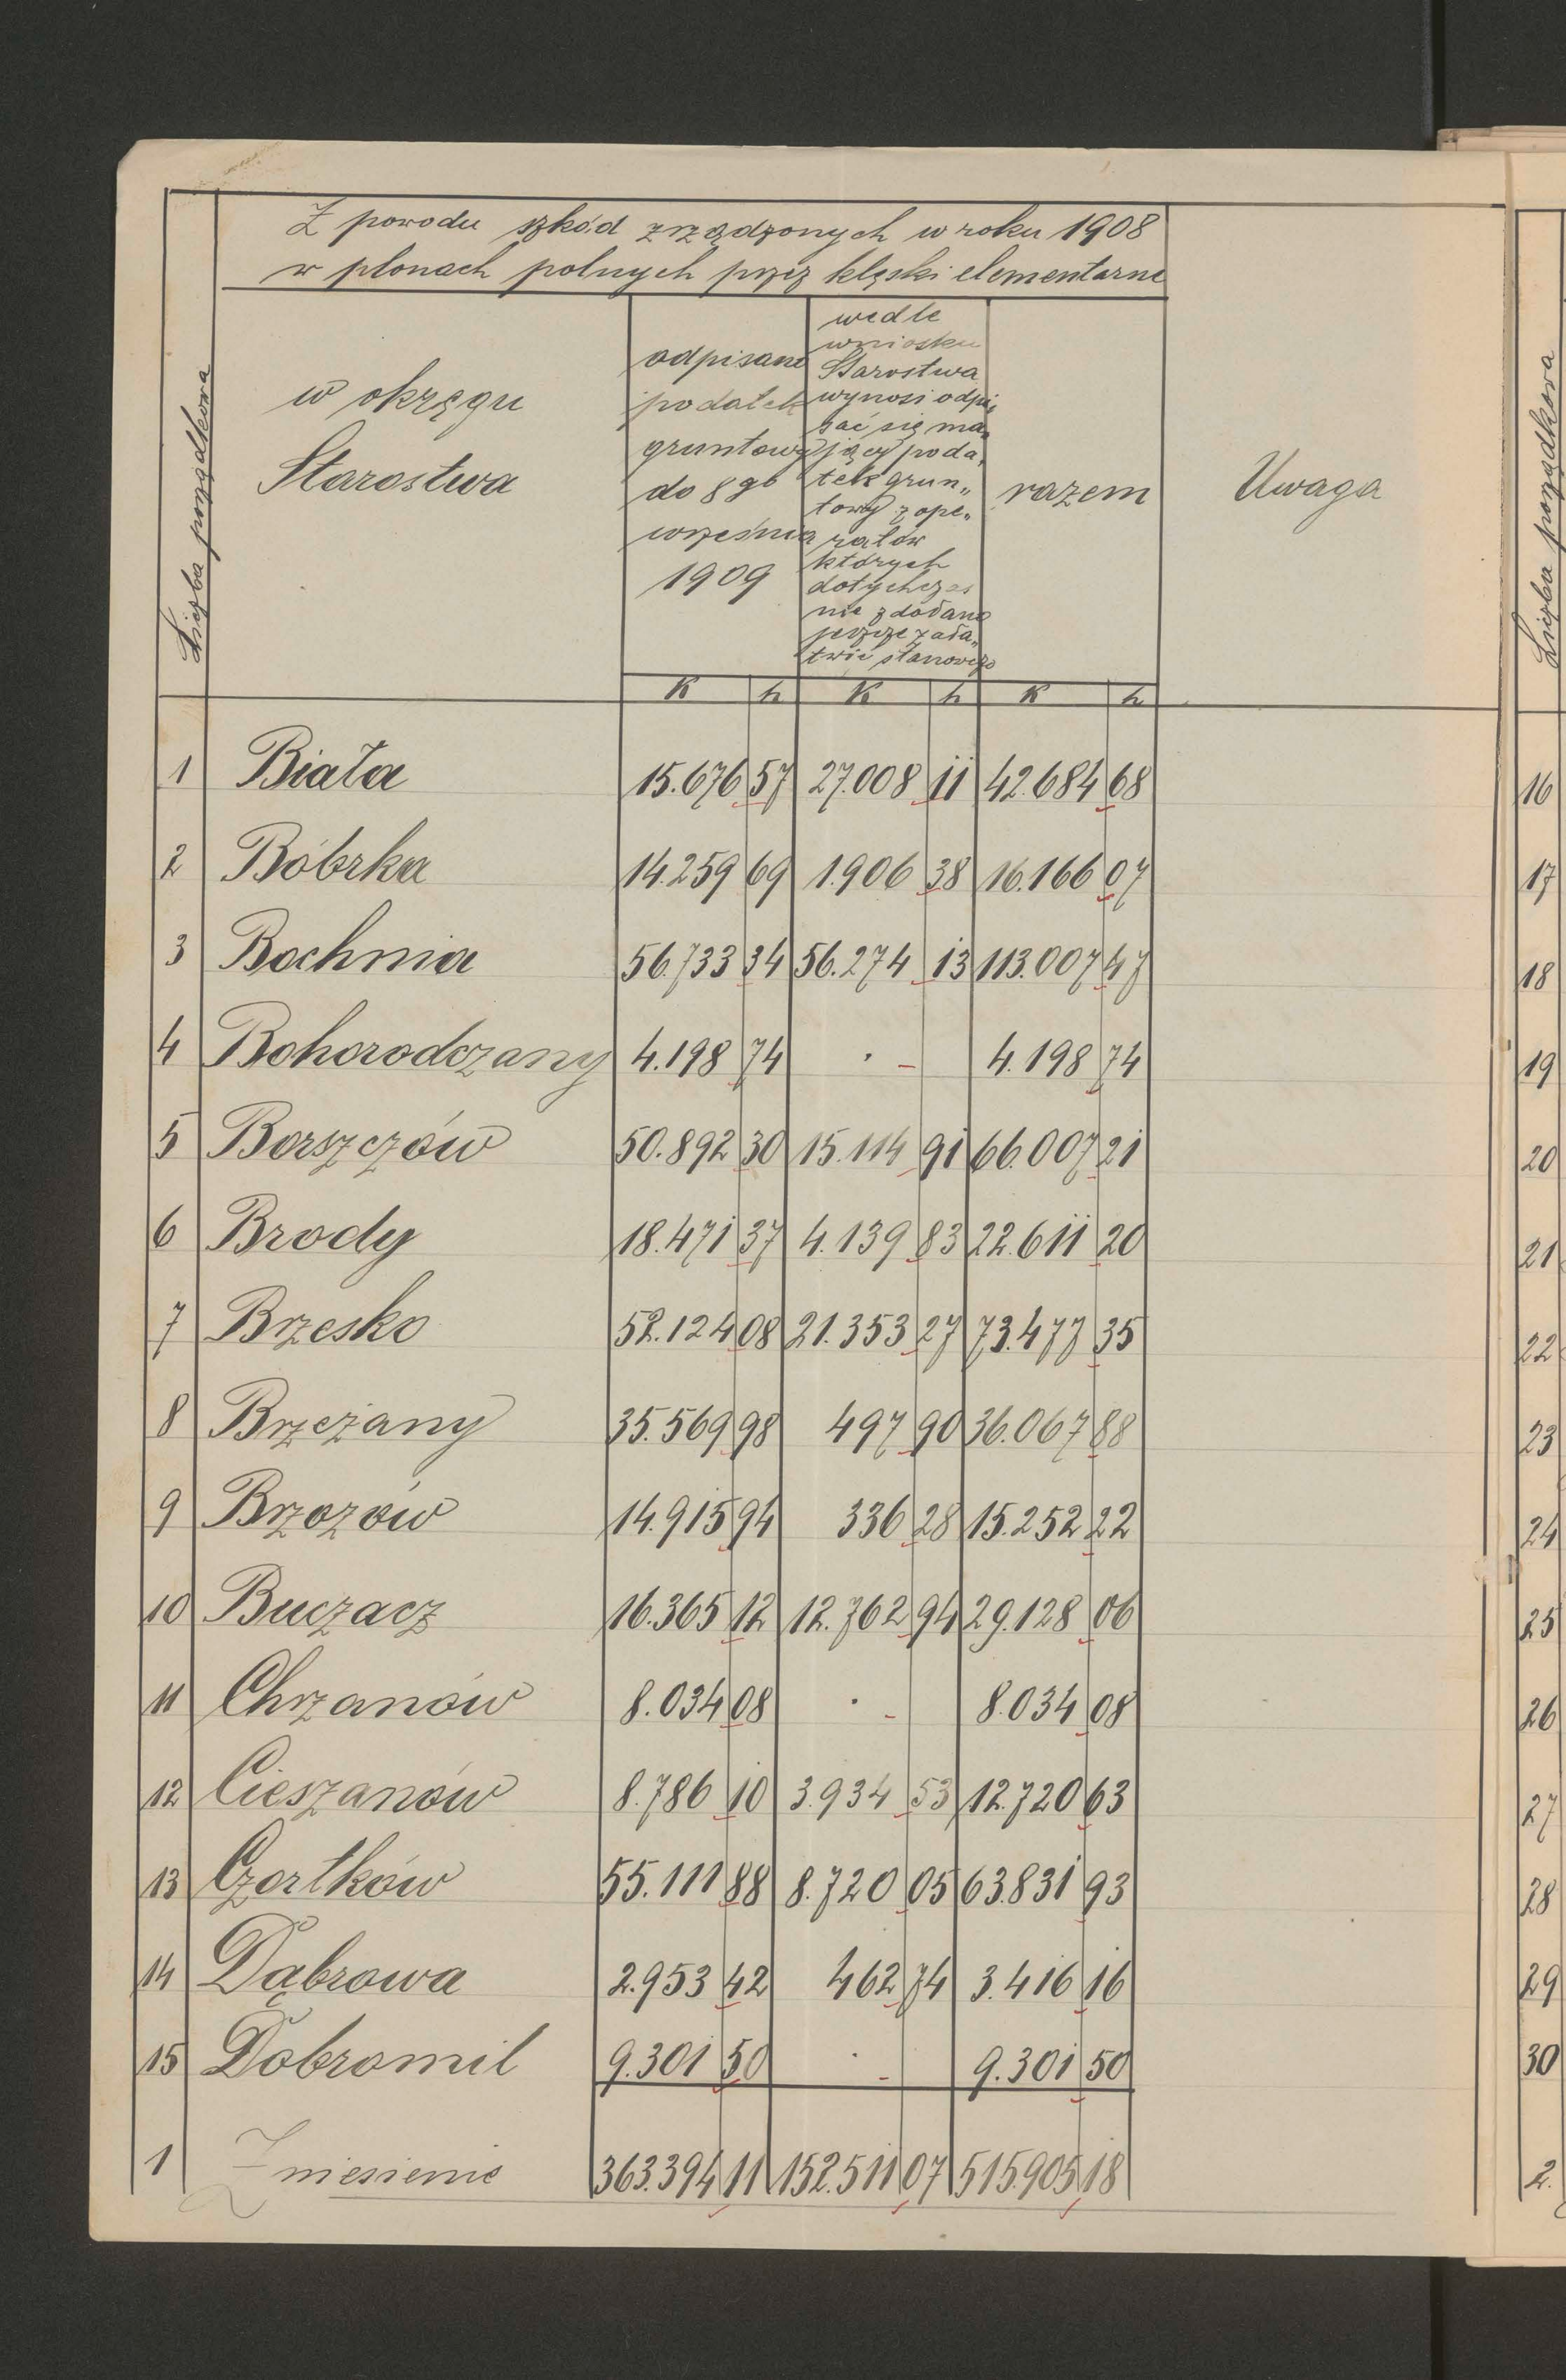 Z powodu szkód zrządzonych w roku 1908
w plonach polnych przez klęski elementarne
Liczba porządkowa
w okręgu
Starostwa
odpisano
podatek
gruntowy
do 8go
września
1909
wedle
wniosku
Starostwa
wynosi odpi„
sać się ma„
jący poda„
tek grun„
towy z ope„
ratów
których
dotychczas
nie zdołano
jeszcze zała„
twić stanowczo
razem
Uwaga
K h K h K h
1 Biała 15.676 57 27.008 11 42.684 68
2 Bóbrka 14.259 69 1.906 38 16.166 07
3 Bochnia 56.733 34 56.274 13 113.007 47
4 Bohorodczany 4.198 74 · - 4.198 74
5 Borszczów 50.892 30 15.114 91 66.007 21
6 Brody 18.471 37 4.139 83 22.611 20
7 Brzesko 52.124 08 21.353 27 73.477 35
8 Brzeżany 35.569 98 497 90 36.067 88
9 Brzozów 14.915 94 336 28 15.252 22
10 Buczacz 16.365 12 12.762 94 29.128 06
11 Chrzanów 8.034 08 · - 8.034 08
12 Cieszanów 8.786 10 3.934 53 12.720 63
13 Czortków 55.111 88 8.720 05 63.831 93
14 Dąbrowa 2.953 42 462 74 3.416 16
15 Dobromil 9.301 50 · - 9.301 50
1 Zniesienie 363.394 11 152.511 07 515.905 18
Liczba porządkowa
16
17
18
19
20
21
22
23
24
25
26
27
28
29
30
2.